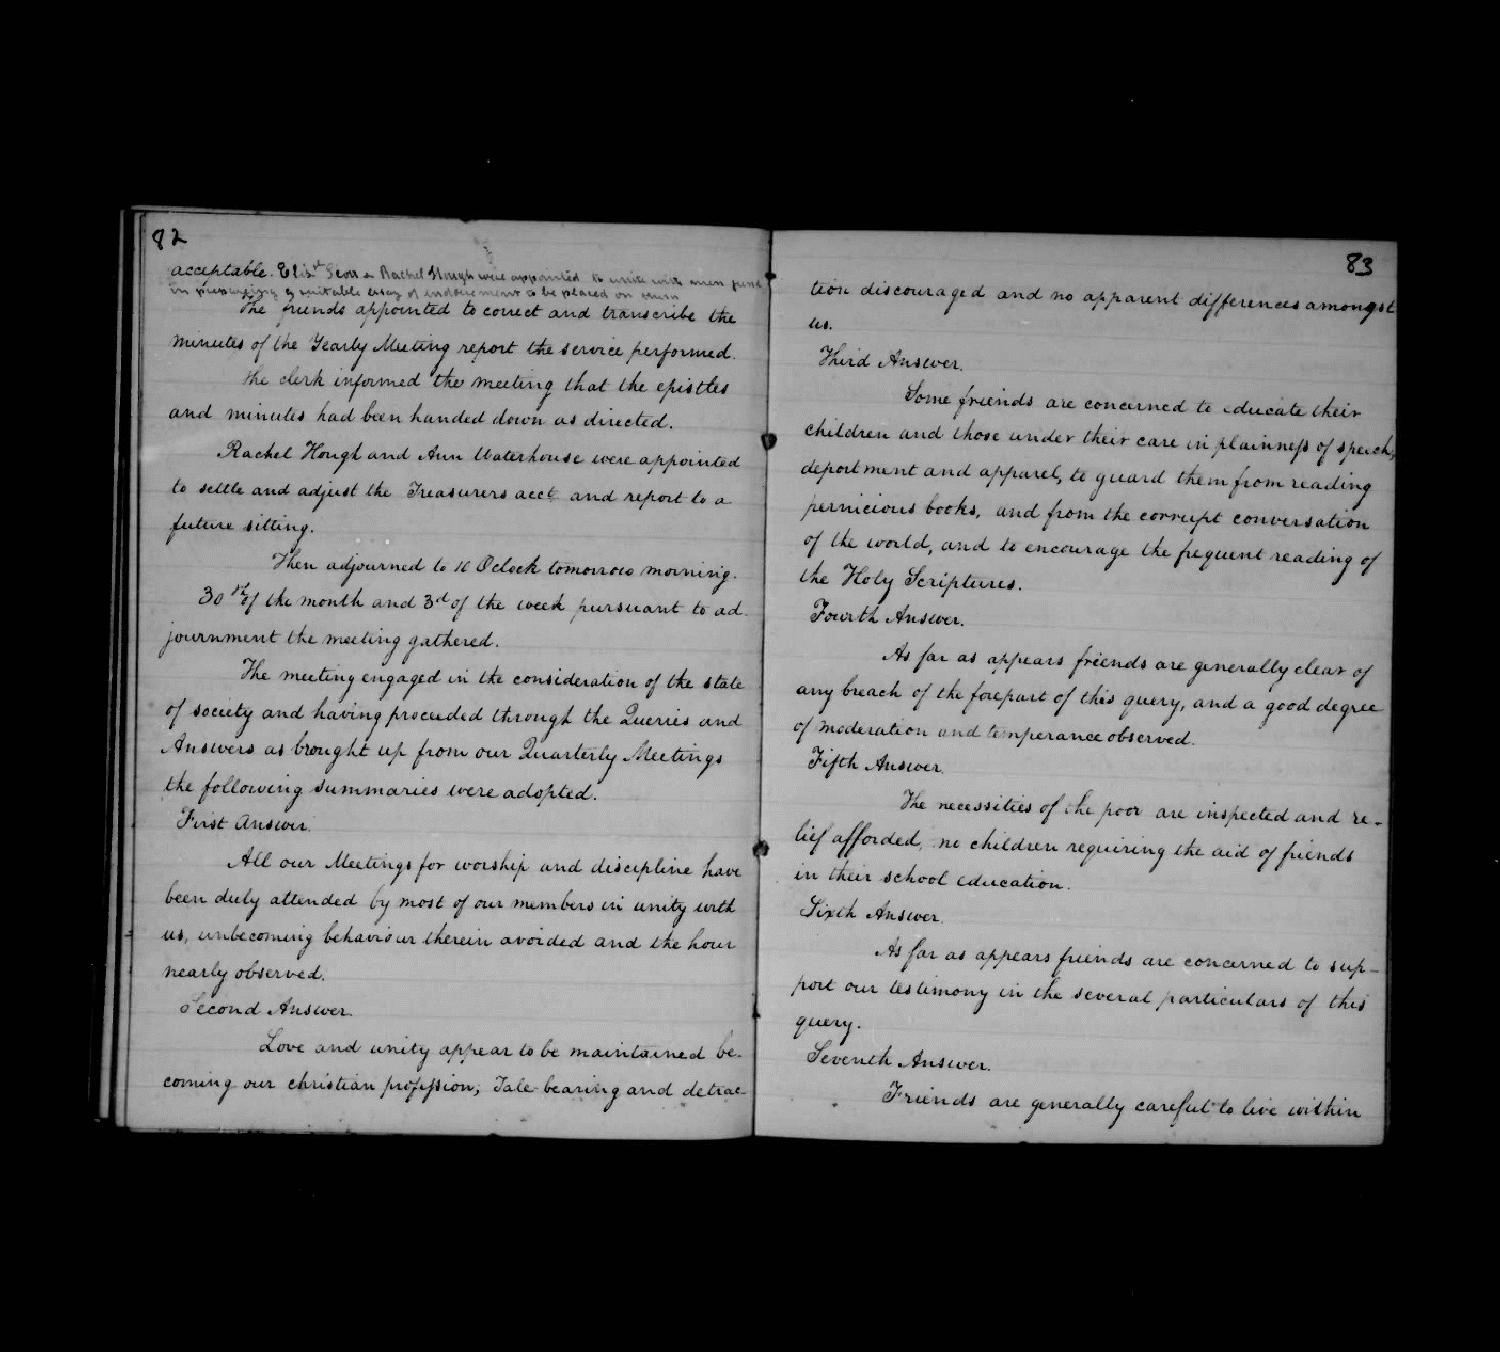 82
acceptable. Elizth Scott & Rachel Hough were appointed to unite with men friends
in preparing a suitable essay of endorsement to be placed on them
The friends appointed to correct and transcribe the
minutes of the Yearly Meeting report the service performed.
The clerk informed the meeting that the epistles
and minutes had been handed down as directed.
Rachel Hough and Ann Waterhouse were appointed
to settle and adjust the Treasurers acct and report to a
future sitting.
Then adjourned to 10 Oclock tomorrow morning.
30th of the month and 3d of the week pursuant to ad
journment the meeting gathered.
The meeting engaged in the consideration of the state
of society and having proceeded through the Queries and
Answers as brought up from our Quarterly Meetings
the following summaries were adopted.
First Answer.
All our Meetings for worship and discipline have
been duly attended by most of our members in unity with
us, unbecoming behaviour therein avoided and the hour
nearly observed.
Second Answer.
Love and unity appear to be maintained be-
coming our christian profession; Tale-bearing and detrac-
83
tion discouraged and no apparent differences amongst
us.
Third Answer.
Some friends are concerned to educate their
children and those under their care in plainness of speech,
deportment and apparel, to guard them from reading
pernicious books, and from the corrupt conversation
of the world, and to encourage the frequent reading of
the Holy Scriptures.
Fourth Answer.
As far as appears friends are generally clear of
any breach of the forepart of this query, and a good degree
of moderation and temperance observed.
Fifth Answer.
The necessities of the poor are inspected and re-
lief afforded, no children requiring the aid of friends
in their school education.
Sixth Answer.
As far as appears friends are concerned to sup-
port our testimony in the several particulars of this
query.
Seventh Answer.
Friends are generally careful to live within